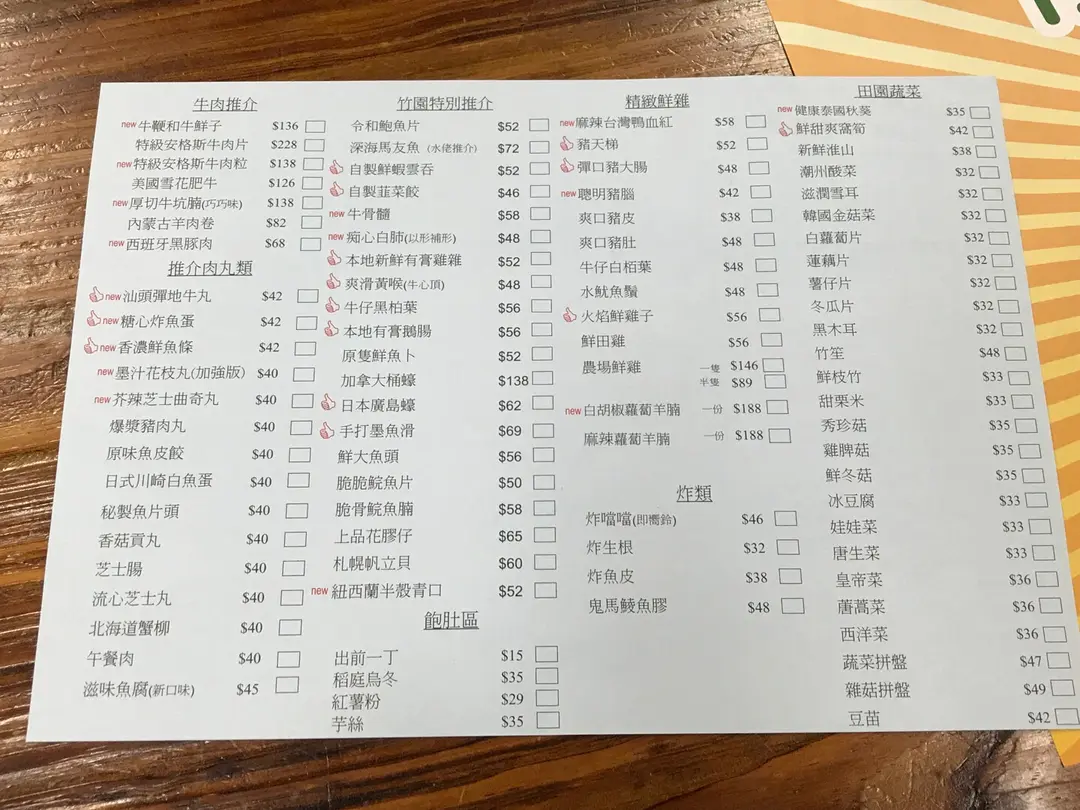 牛肉推介
new牛鞭和牛鮮子 $136
特級安格斯牛肉片 $228
new特級安格斯牛肉粒 $138
美國雪花肥牛 $126
new厚切牛坑腩(巧巧味) $138
內蒙古羊肉卷 $82
new西班牙黑豚肉 $68
推介肉丸類
new汕頭彈地牛丸 $42
new糖心炸魚蛋 $42
new香濃鮮魚條 $42
new墨汁花枝丸(加強版) $40
new芥辣芝士曲奇丸 $40
爆漿豬肉丸 $40
原味魚皮餃 $40
日式川崎白魚蛋 $40
秘製魚片頭 $40
香菇貢丸 $40
芝士腸 $40
流心芝士丸 $40
北海道蟹柳 $40
午餐肉 $40
滋味魚腐(新口味) $45
竹園特別推介
令和鮑魚片 $52
深海馬友魚 (水佬推介) $72
自製鮮蝦雲吞 $52
自製韮菜餃 $46
new牛骨髓 $58
new痴心白肺(以形補形) $48
本地新鮮有膏雞雜 $52
爽滑黃喉(牛心頂) $48
牛仔黑柏葉 $56
本地有膏鵝腸 $56
原隻鮮魚卜 $52
加拿大桶蠔 $138
日本廣島蠔 $62
手打墨魚滑 $69
鮮大魚頭 $56
脆脆鯇魚片 $50
脆骨鯇魚腩 $58
上品花膠仔 $65
札幌帆立貝 $60
new紐西蘭半殼青口 $52
飽肚區
出前一丁 $15
稻庭烏冬 $35
紅薯粉 $29
芋絲 $35
精緻鮮雜
new麻辣台灣鴨血紅 $58
豬天梯 $52
彈口豬大腸 $48
new聰明豬腦 $42
爽口豬皮 $38
爽口豬肚 $48
牛仔白栢葉 $48
水魷魚鬚 $48
火焰鮮雞子 $56
鮮田雞 $56
農場鮮雞 一隻 $146
半隻 $89
new白胡椒蘿蔔羊腩 一份 $188
麻辣蘿蔔羊腩 一份 $188
炸類
炸噹噹(即嚮鈴) $46
炸生根 $32
炸魚皮 $38
鬼馬鯪魚膠 $48
田園蔬菜
new健康泰國秋葵 $35
鮮甜爽窩筍 $42
新鮮淮山 $38
潮州酸菜 $32
滋潤雪耳 $32
韓國金菇菜 $32
白蘿蔔片 $32
蓮藕片 $32
薯仔片 $32
冬瓜片 $32
黑木耳 $32
竹笙 $48
鮮枝竹 $33
甜栗米 $33
秀珍菇 $35
雞脾菇 $35
鮮冬菇 $35
冰豆腐 $33
娃娃菜 $33
唐生菜 $33
皇帝菜 $36
蓎蒿菜 $36
西洋菜 $36
蔬菜拼盤 $47
雜菇拼盤 $49
豆苗 $42